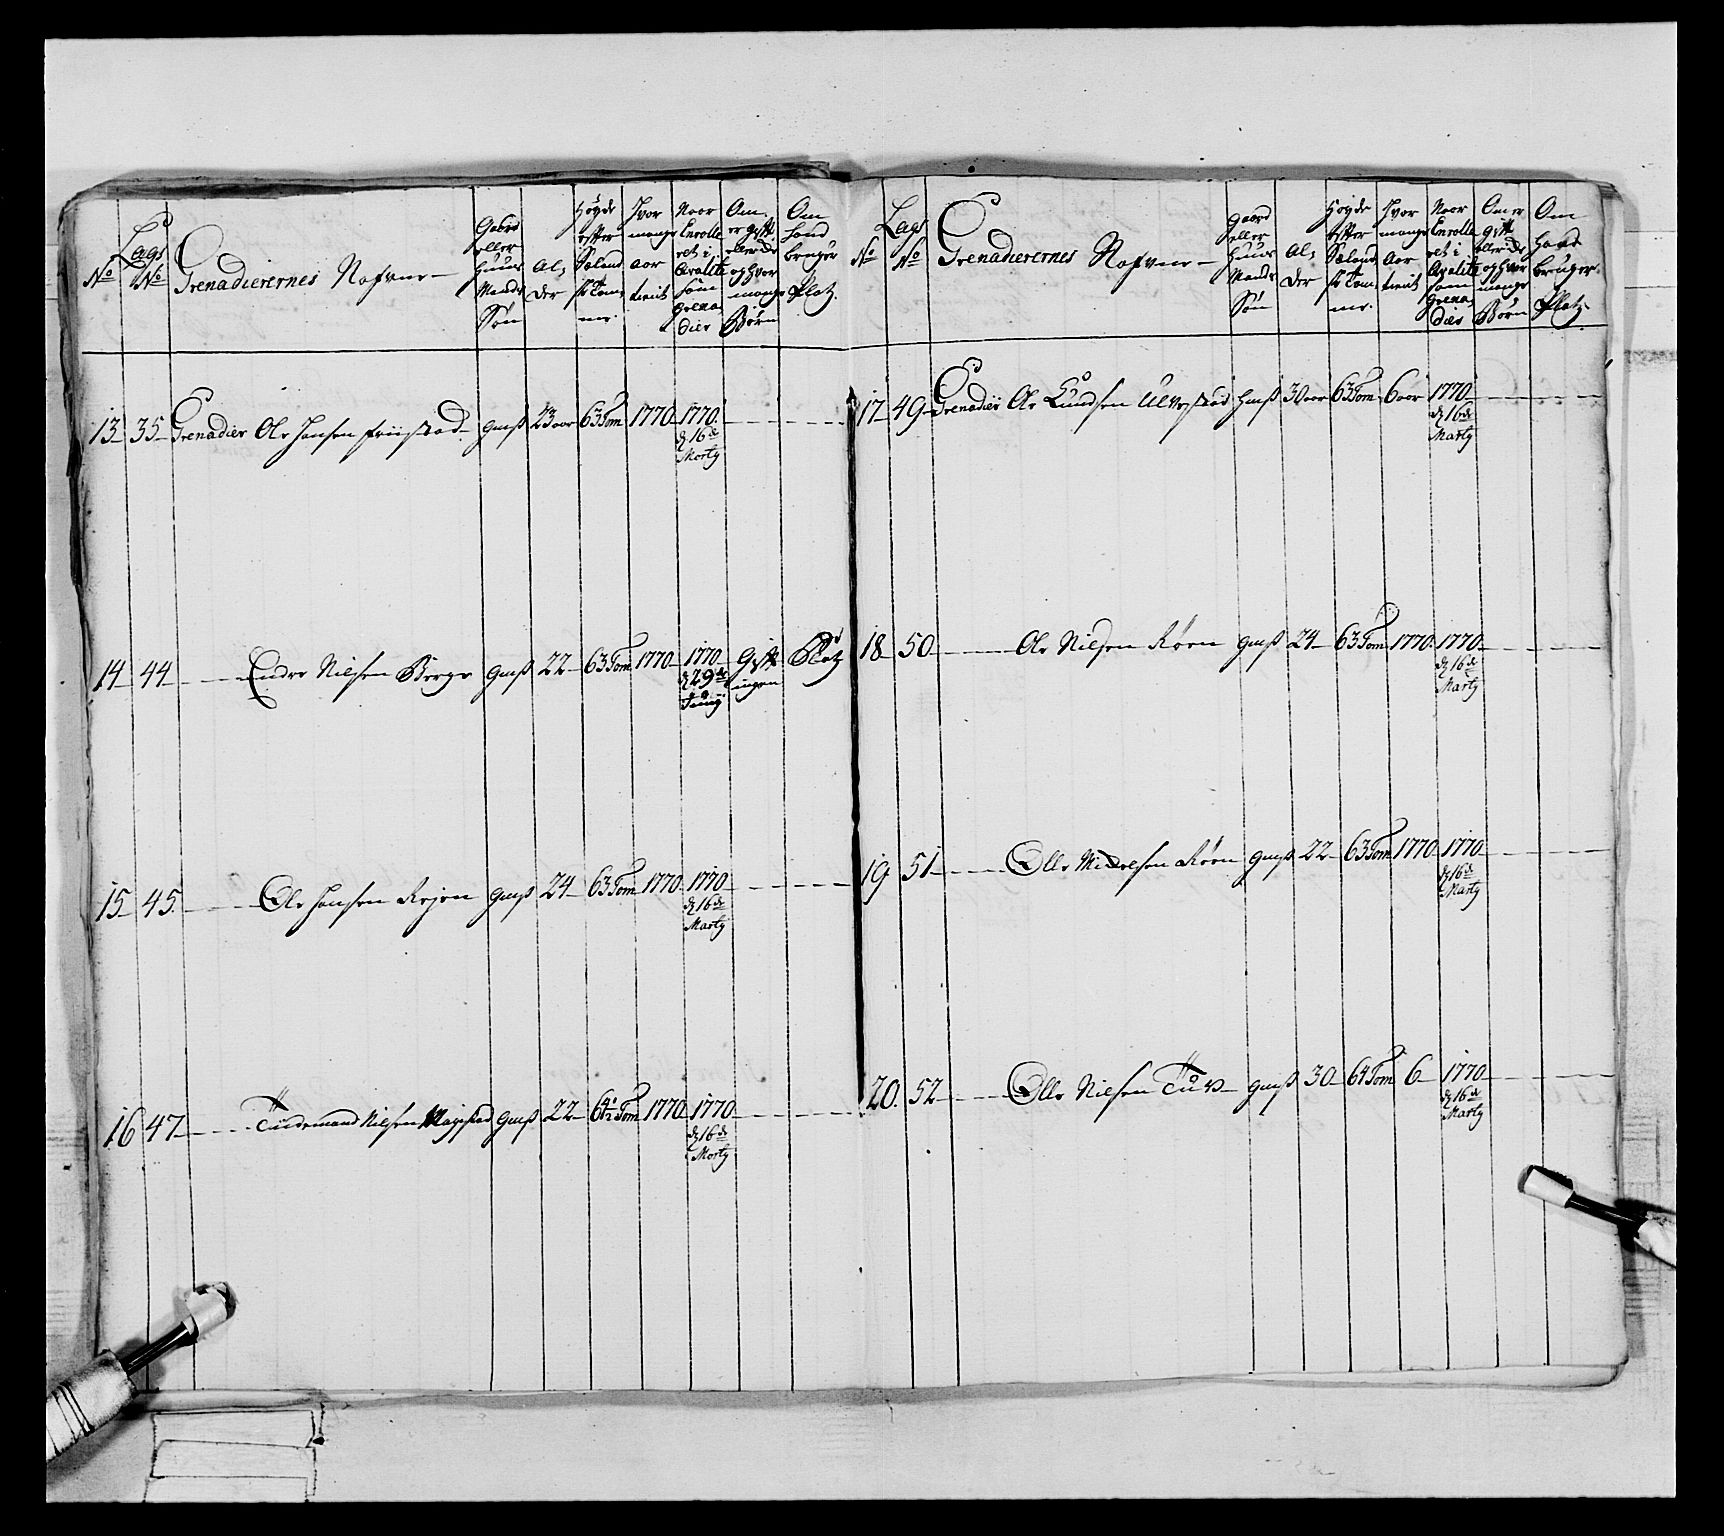 No
Lags No
Grenadierernes Nafvne
Gaard eller Huus Mands Søn
Alder
Høyde efter Siælands Tomme
Hvor mange aar tient
Naar Enrolleret i Qvalite som Grenadier
Om er gift eller ei og hvor mange Børn
Om hand bruger Platz
13 35 Grenadier Ole Hansen gmß 23 aar 63 Tom 1770 1770
d 16de Marty
14 44 Nilsen Berge gmß 22 63 Tom 1770 1770 Gift Platz
d 29de ingen
Juny
15 45 Ole Hansen gmß 24 63 Tom 1770 1770
d 16de
Marty
16 47 Tindemand Nilsen gmß 22 64 1/2 Tom 1770 1770
d 16de
Marty
No
Lags No
Grenadierernes Nafvne
Gaard eller Huus Mands Søn
Alder
Høyde efter Siælands Tomme
Hvor mange Aar tient
Naar Enrolleret i Qvalite som Grenadier
Om er gift eller ei og hvor mange Børn
Om hand bruger Platz
17 49 Grenadier Ole Knudsen hmß 30 aar 63 Tom 6 aar 1770
d 16de
Marty
18 50 Ole Nilsen Røen gmß 24 63 Tom 1770 1770
d 16de
Marty
19 51 Olle Røen gmß 22 63 Tom 1770 1770
d 16de
Marty
20 52 Olle Nilsen gmß 30 64 Tom 6 1770
d 16de
Marty